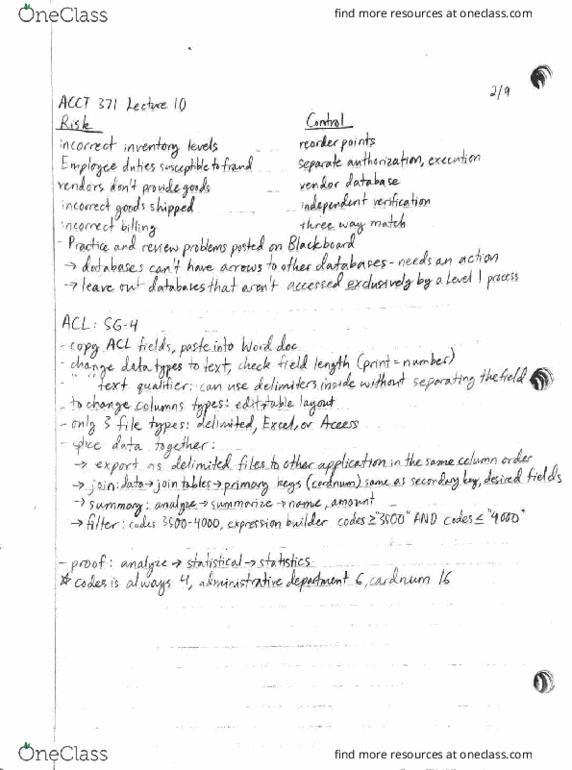 OneClass find more resources at oneclass.com
2/9
ACCT 371 Lecture 10
Risk Control
incorrect inventory levels reorder points
Employee duties susceptible to fraud separate authorization, execution
vendors don't provide goods vendor database
incorrect goods shipped independent verification
incorrect billing three way match
- Practice and review problems posted on Blackboard
→ databases can't have arrows to other databases - needs an action
→ leave out databases that aren't accessed exclusively by a Level 1 process
ACL: SG-4
- copy ACL fields, paste into Word doc
- change data types to text, check field length (print = number)
- " " text qualifier: can use delimiters inside without separating the field
- to change columns types: edit→table layout
- only 3 file types: delimited, Excel, or Access
- splice data together:
→ export as delimited files to other application in the same column order
→ join: data→join tables→primary keys (cardnum) same as secondary key, desired fields
→ summary: analyze→summarize→name, amount
→ filter: codes 3500-4000, expression builder codes ≥ "3500" AND codes ≤ "4000"
- proof: analyze → statistical → statistics
* codes is always 4, administrative department 6, cardnum 16
OneClass find more resources at oneclass.com